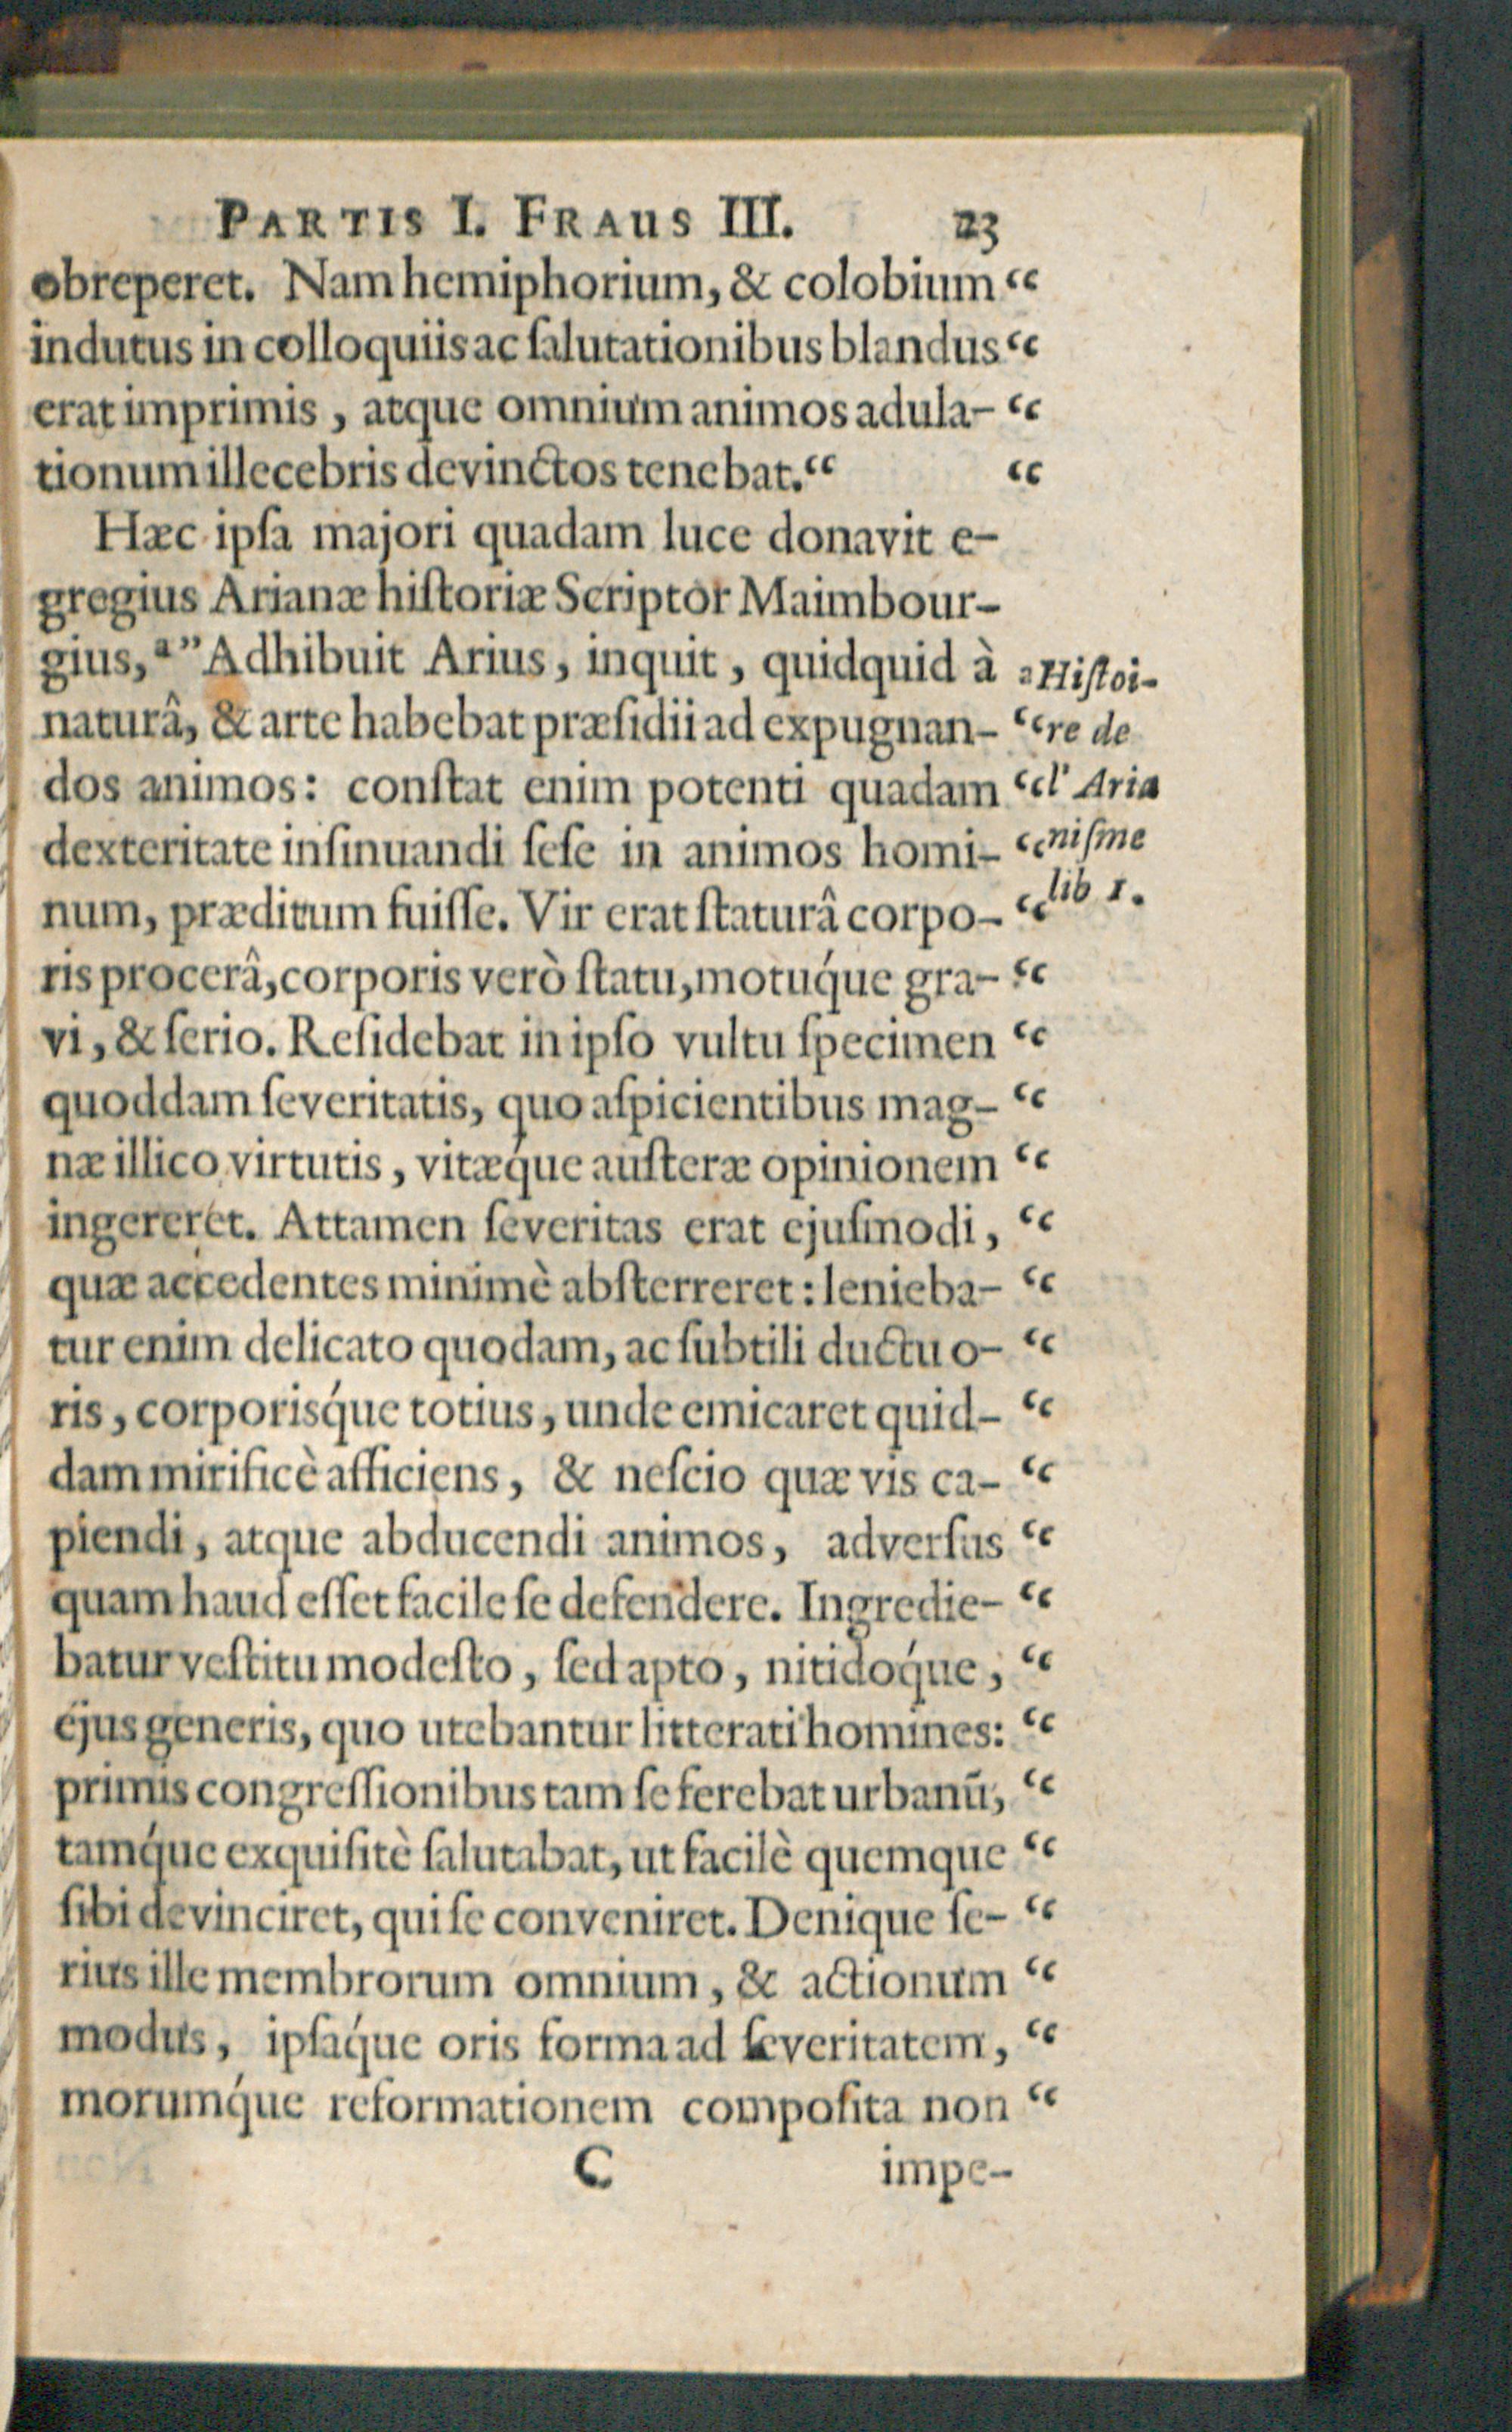 PARTIS I. FRAUS III. 23
obreperet. Nam hemiphorium, & colobium “
indutus in colloquiis ac ſalutationibus blandus “
erat imprimis, atque omnium animos adula- “
tionum illecebris devinctos tenebat.“ “
Hæc ipſa majori quadam luce donavit e-
gregius Arianæ hiſtoriæ Scriptor Maimbour-
gius, ª ” Adhibuit Arius, inquit, quidquid à
naturâ, & arte habebat præſidii ad expugnan- “
dos animos: conſtat enim potenti quadam “
dexteritate inſinuandi ſeſe in animos homi- “
num, præditum fuiſſe. Vir erat ſtaturâ corpo- “
ris procerâ, corporis verò ſtatu, motuq́ue gra- “
vi, & ſerio. Reſidebat in ipſo vultu ſpecimen “
quoddam ſeveritatis, quo aſpicientibus mag- “
næ illico virtutis, vitæq́ue auſteræ opinionem “
ingereret. Attamen ſeveritas erat ejuſmodi, “
quæ accedentes minimè abſterreret: lenieba- “
tur enim delicato quodam, ac ſubtili ductu o- “
ris, corporisq́ue totius, unde emicaret quid- “
dam mirificè afficiens, & neſcio quæ vis ca- “
piendi, atque abducendi animos, adverſus “
quam haud eſſet facile ſe defendere. Ingredie- “
batur veſtitu modeſto, ſed apto, nitidoq́ue, “
ejus generis, quo utebantur litterati homines: “
primis congreſſionibus tam ſe ferebat urbanū, “
tamq́ue exquiſitè ſalutabat, ut facilè quemque “
ſibi devinciret, qui ſe conveniret. Denique ſe- “
rius ille membrorum omnium, & actionum “
modus, ipſaq́ue oris forma ad ſeveritatem, “
morumq́ue reformationem compoſita non “
C impe-
a Hiſtoi-
re de
l' Aria
niſme
lib 1.